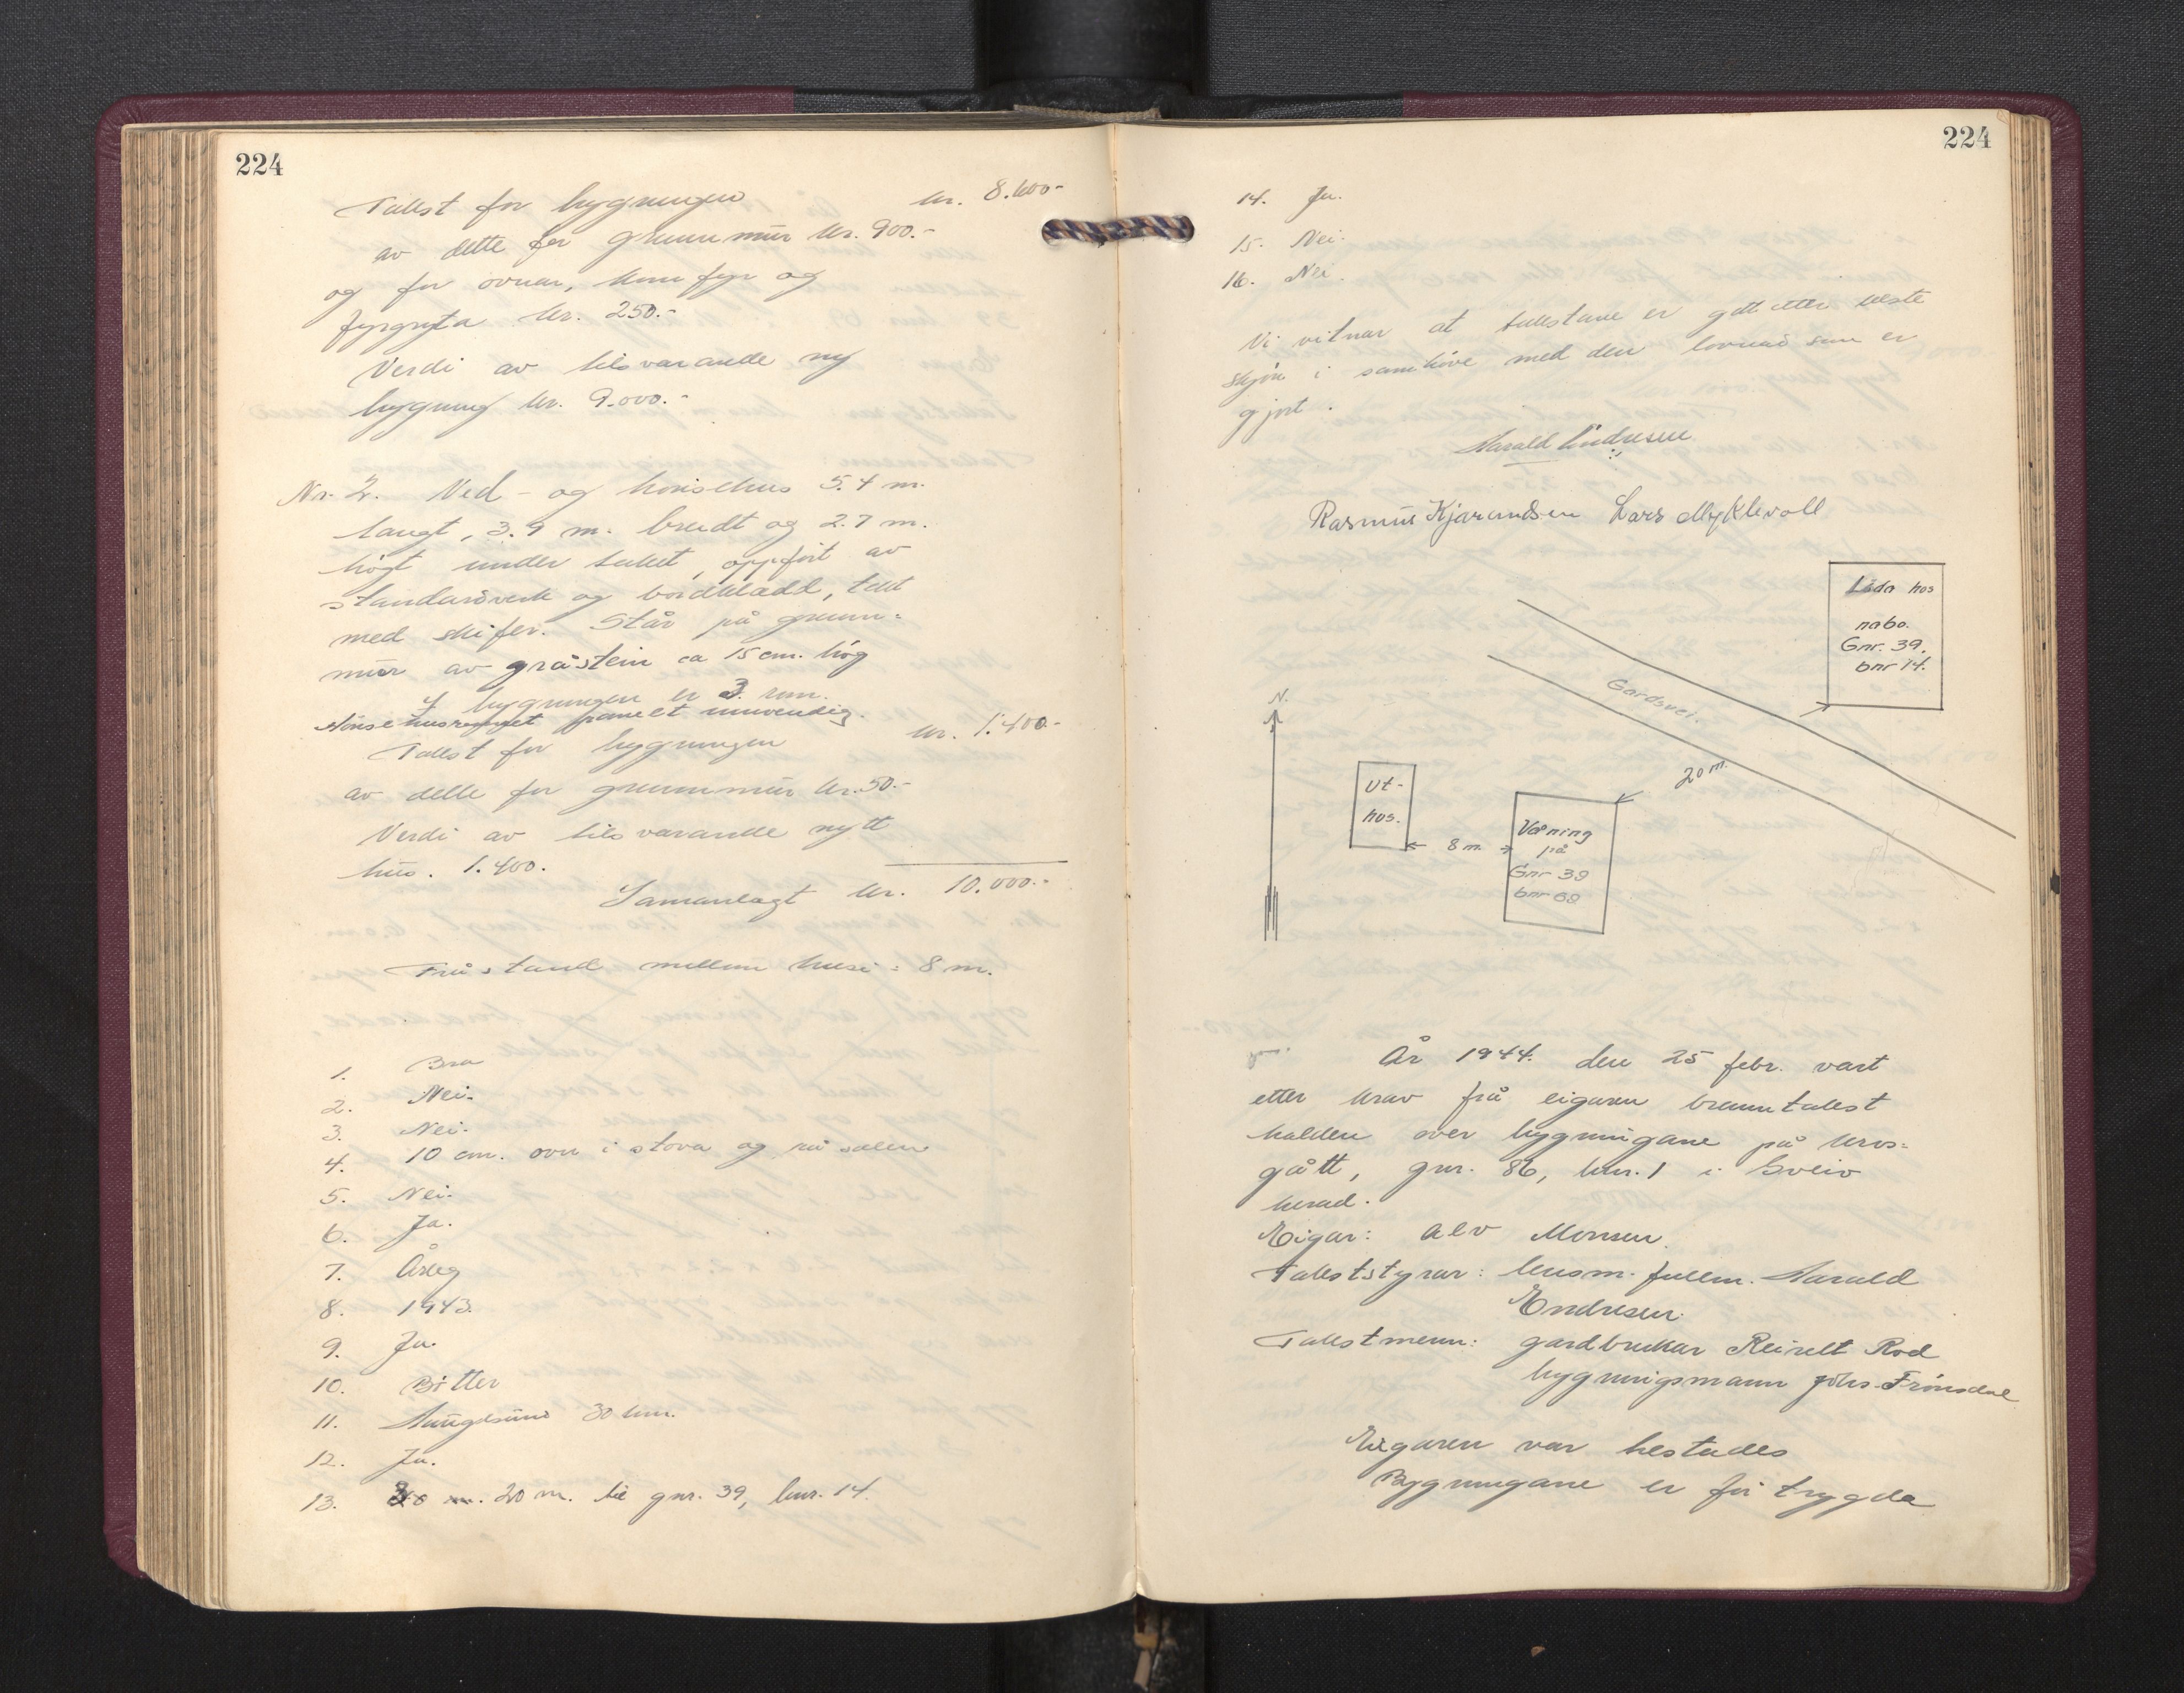 224
Takst for bygningen kr. 8.600.-
av dette for grunnmur kr. 900.-
og for ovnar, komfyr og
fyrgryta kr. 250.-
Verdi av tilsvarande ny
bygning kr. 9.000.-
Nr. 2. Ved- og hønsehus 5.4 m.
langt, 3.9 m. breidt og 2.7 m.
høgt under taket, oppført av
standarverk og bordkledd, tekt
med skifer. Står på grunn-
mur av gråstein ca 15 cm. høg
I bygningen er 3 rom.
Hønsehusrommet panelt innvendig.
Takst for bygningen kr. 1.400.-
av dette for grunnmur kr. 50.-
Verdi av tilsvarande nytt
hus. 1.400.
Samanlagt kr. 10.000.-
Fråstand mellom husi: 8 m.
1. Bra
2. Nei.
3. Nei.
4. 10 cm. ovn i stova og på salen
5. Nei.
6. Ja.
7. Årleg
8. 1943.
9. Ja.
10. Bøtter
11. Haugesund 30 km.
12. Ja.
13. 20 m. til gnr. 39, bnr. 14.
224
14. Ja.
15. Nei.
16. Nei.
Vi vitnar at takstane er gitt etter beste
skjøn i samhøve med den lovnad som er
gjort.
Harald Endresen
Rasmus Kjarandsen Lars Myklevoll
Løda hos
nabo.
Gnr. 39.
bnr 14.
Gardsvei.
N.
20 m.
Ut-
hus.
8 m.
Våning
på
Gnr 39
bnr 69
År 1944. den 25 febr. vart
etter krav frå eigaren branntakst
halden over bygningane på
gått, gnr. 86, bnr. 1 i Sveio
herad.
Eigar: Alv Monsen.
Takststyrar: lensm. fullm. Harald
Endresen.
Takstmenn: gardbrukar Reinelt Rød
bygningsmann Johs. Frønsdal
Eigaren var tilstades
Bygningane er før trygda